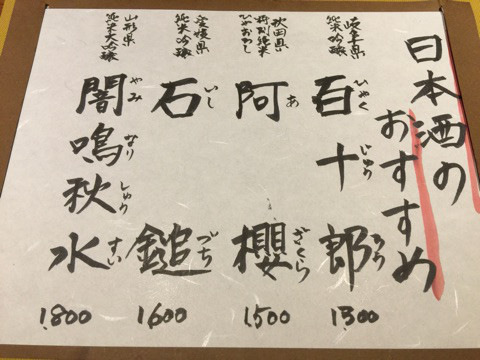 日本酒の
おすすめ
岐阜県
純米吟醸
百十郎
ひゃくじゅうろう
1300
秋田県
特別純米
ひやおろし
阿櫻
あざくら
1500
愛媛県
純米吟醸
石鎚
いしづち
1600
山形県
純米大吟醸
闇鳴秋水
やみなりしゅうすい
1800